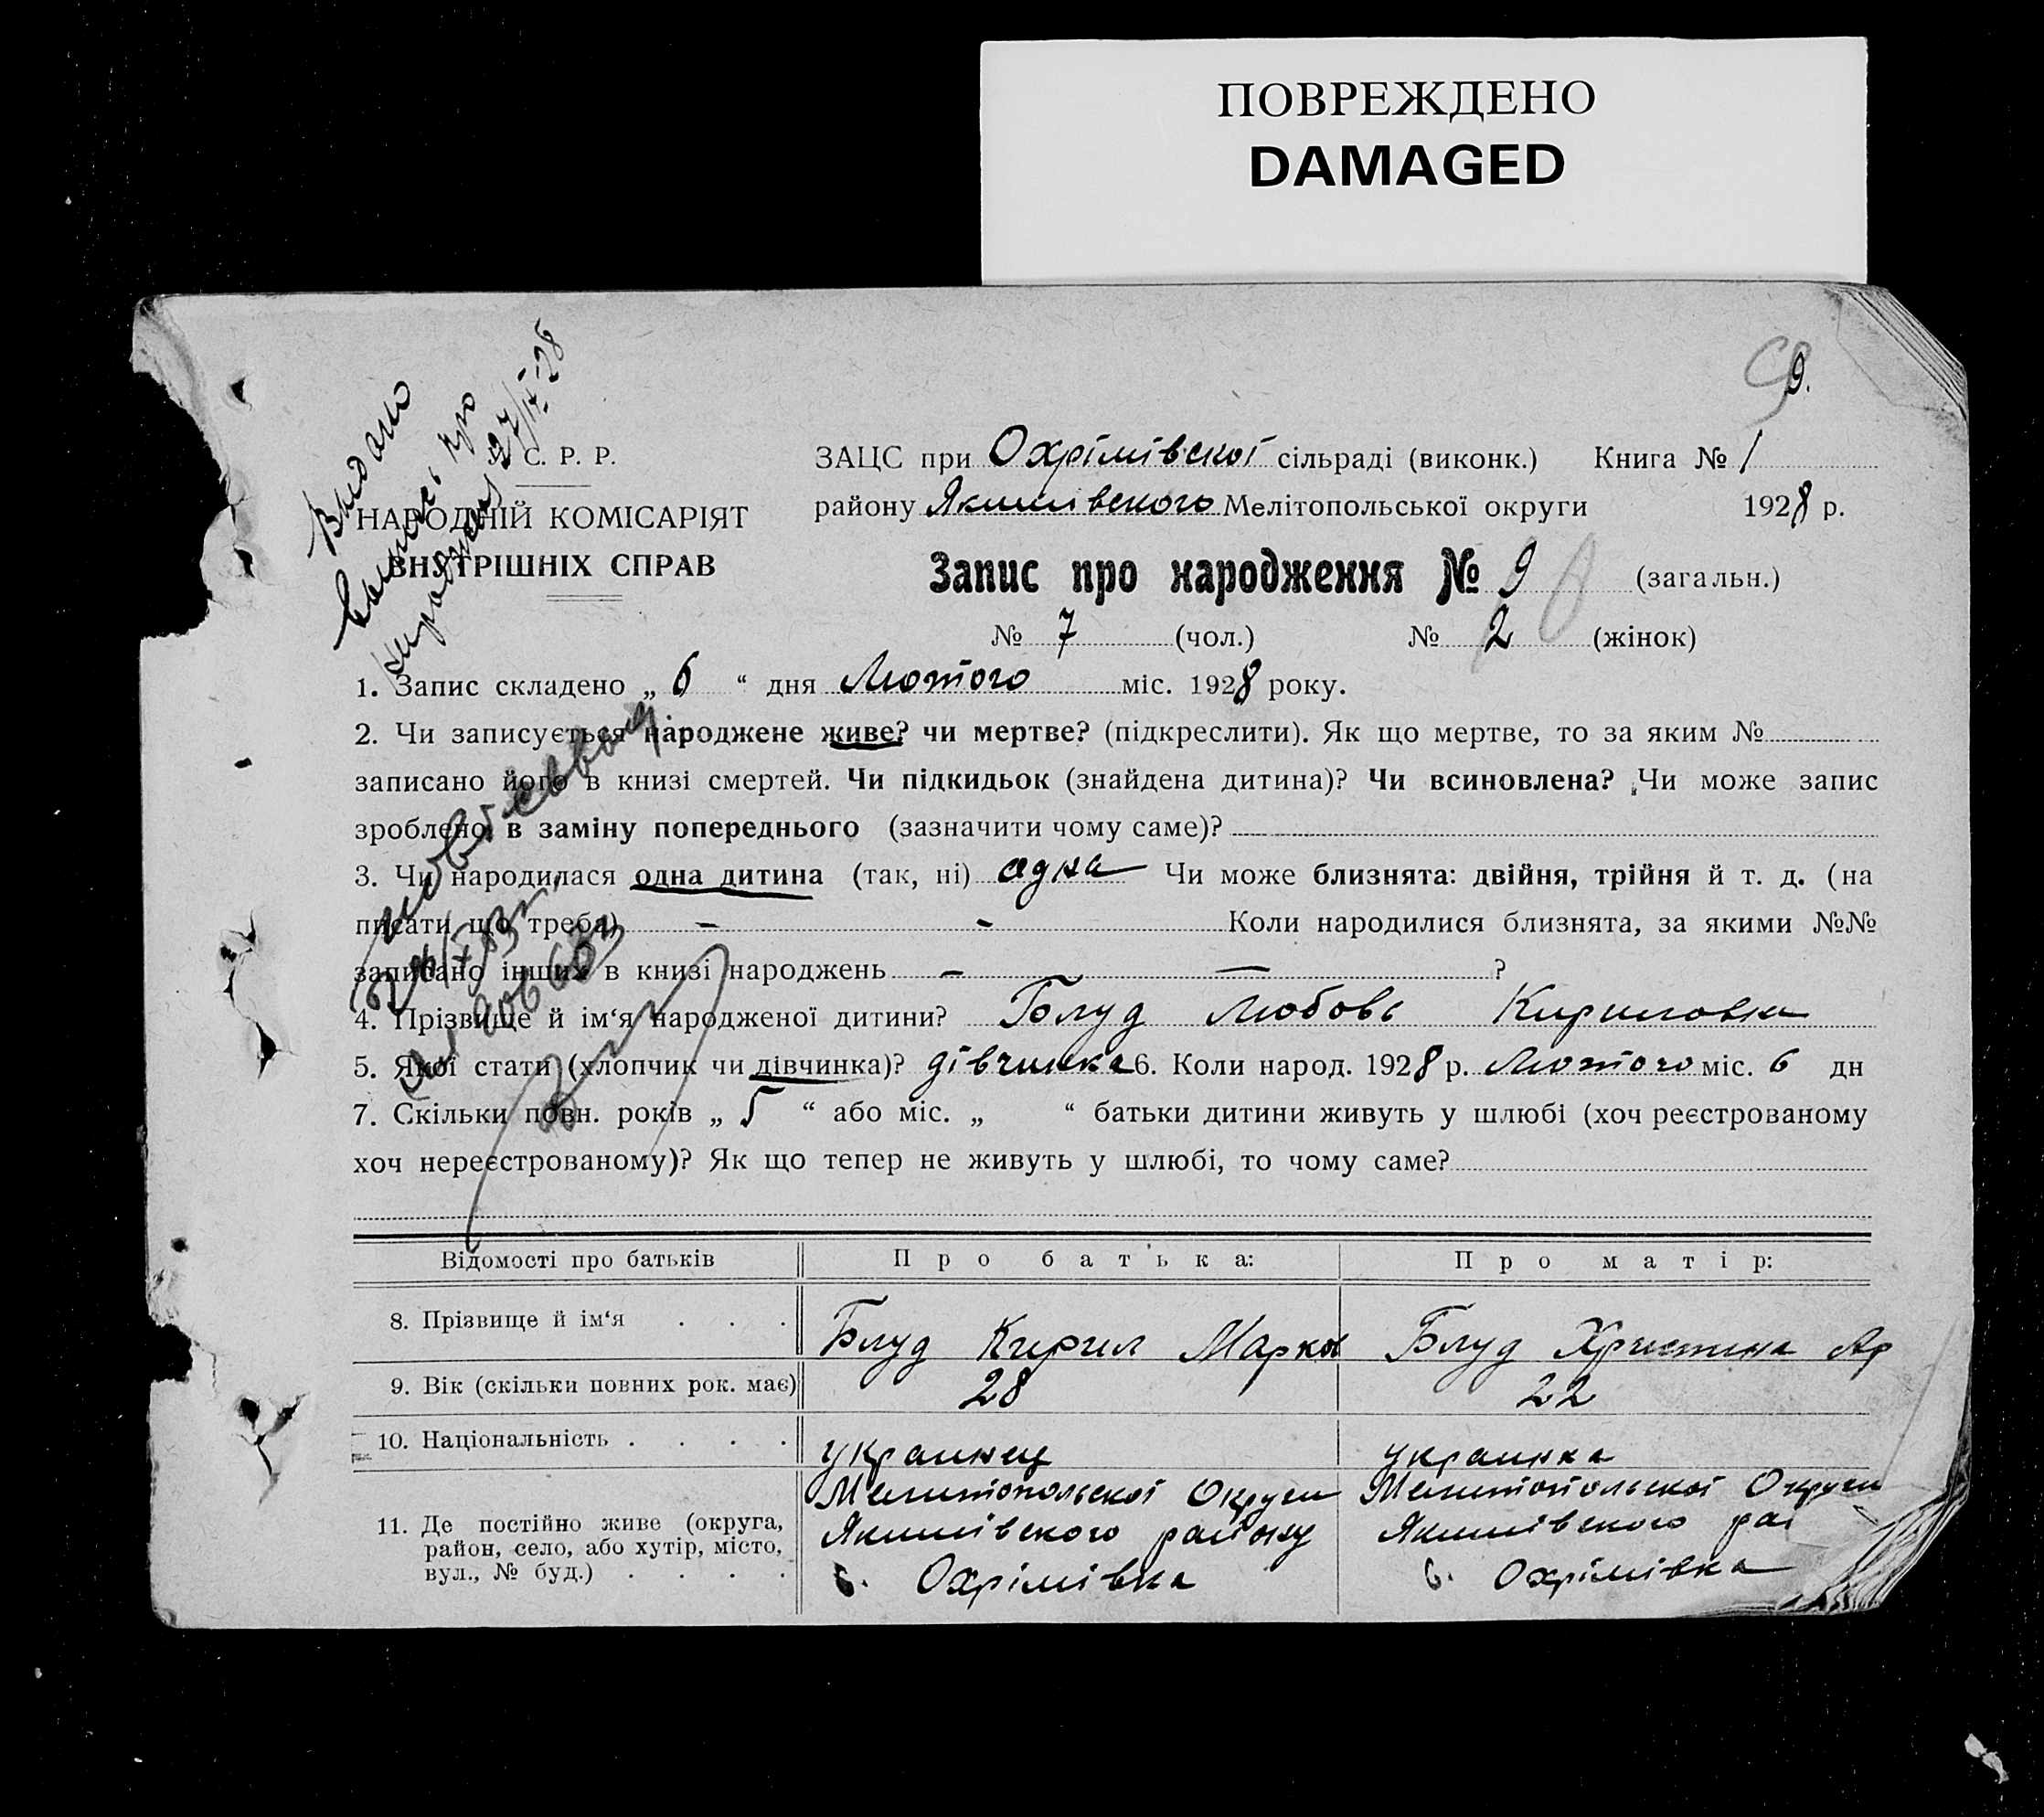 ПОВРЕЖДЕНО
DAMAGED
9.
Видано
про
27/IV-28
С. Р. Р.
НАРОДНІЙ КОМІСАРІЯТ
ВНУТРІШНІХ СПРАВ
ЗАЦС при Охрімівскоі сільраді (виконк.) Книга № 1
району Якимівского Мелітопольської округи 1928 р.
Запис про народження № 9 (загальн.)
№ 7 (чол.) № 2 (жінок)
1. Запис складено „ 6 “ дня Лютого міс. 1928 року.
2. Чи записується народжене живе? чи мертве? (підкреслити). Як що мертве, то за яким №
записано його в книзі смертей. Чи підкидьок (знайдена дитина)? Чи всиновлена? Чи може запис
зроблено в заміну попереднього (зазначити чому саме)?
3. Чи народилася одна дитина (так, ні) одна Чи може близнята: двійня, трійня й т. д. (на
писати що треба) – – Коли народилися близнята, за якими №№
записано інших в книзі народжень – – ?
4. Прізвище й ім‘я народженої дитини? Блуд Любовь Кириловна
5. Якої стати (хлопчик чи дівчинка)? дівчинка 6. Коли народ. 1928 р. Лютого міс. 6 дн
7. Скільки повн. років „ 5 “ або міс. „ “ батьки дитини живуть у шлюбі (хоч реєстрованому
хоч нереєстрованому)? Як що тепер не живуть у шлюбі, то чому саме?
Відомості про батьків Про батька: Про матір:
8. Прізвище й ім‘я . . . Блуд Кирил Марков Блуд Христина Ар
9. Вік (скільки повних рок. має) 28 22
10. Національність . . . . украинец украинка
11. Де постійно живе (округа, район, село, або хутір, місто, вул., № буд.) . . . .
Мелитопольскоі Округи
Якимівского району
с. Охрімівка
Мелитопольскоі Округи
Якимівского рай
с. Охрімівка